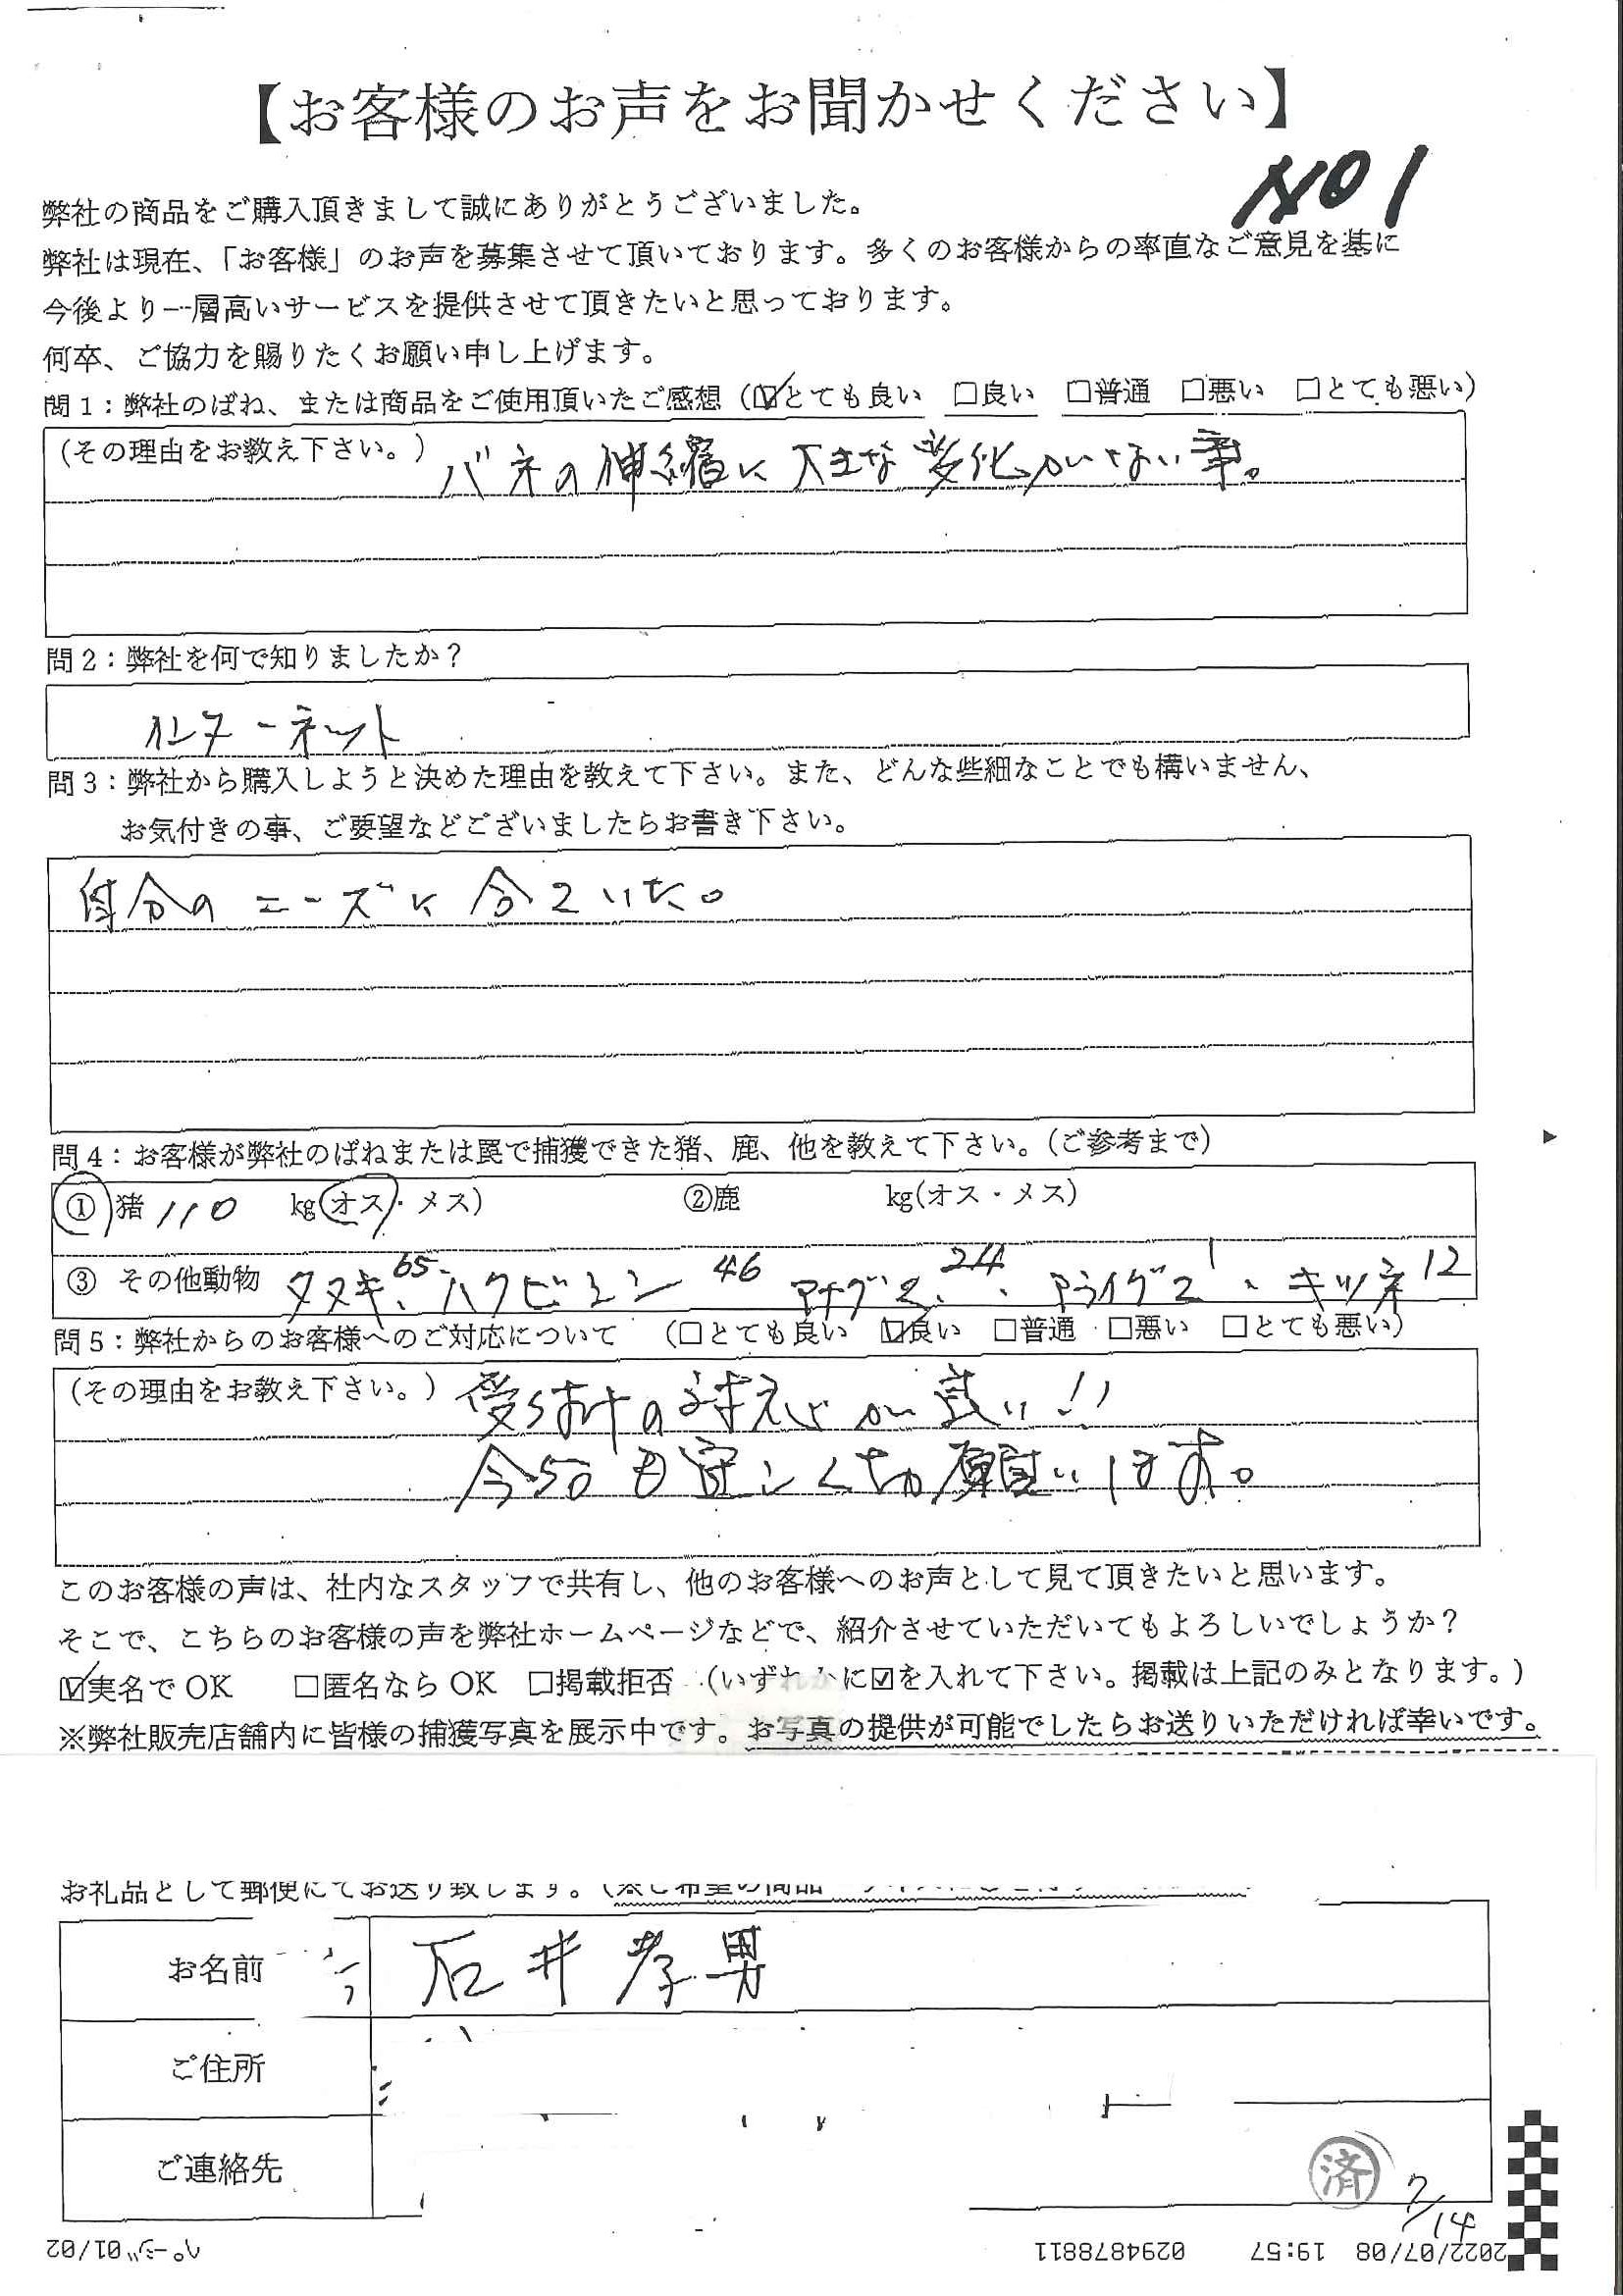 【お客様のお声をお聞かせください】
NO1
弊社の商品をご購入頂きまして誠にありがとうございました。
弊社は現在、「お客様」のお声を募集させて頂いております。多くのお客様からの率直なご意見を基に
今後より一層高いサービスを提供させて頂きたいと思っております。
何卒、ご協力を賜りたくお願い申し上げます。
問1：弊社のばね、または商品をご使用頂いたご感想（☑とても良い　□良い　□普通　□悪い　□とても悪い）
（その理由をお教え下さい。）バネの伸縮に大きな変化がない事。
問2：弊社を何で知りましたか？
インターネット
問3：弊社から購入しようと決めた理由を教えて下さい。また、どんな些細なことでも構いません、
お気付きの事、ご要望などございましたらお書き下さい。
自分のニーズに合ていた。
問4：お客様が弊社のばねまたは罠で捕獲できた猪、鹿、他を教えて下さい。（ご参考まで）
①猪 110 kg(オス・メス)　②鹿　kg(オス・メス)
③ その他動物 タヌキ65、ハクビシン 46 アナグマ24、アライグマ1、キツネ12
問5：弊社からのお客様へのご対応について　（□とても良い　☑良い　□普通　□悪い　□とても悪い）
（その理由をお教え下さい。）受け付けの対応が良い!!
今后も宜しくお願いします。
このお客様の声は、社内なスタッフで共有し、他のお客様へのお声として見て頂きたいと思います。
そこで、こちらのお客様の声を弊社ホームページなどで、紹介させていただいてもよろしいでしょうか？
☑実名でOK　□匿名ならOK　□掲載拒否　（いずれかに☑を入れて下さい。掲載は上記のみとなります。）
※弊社販売店舗内に皆様の捕獲写真を展示中です。お写真の提供が可能でしたらお送りいただければ幸いです。
お礼品として郵便にてお送り致します。（※ご希望の商品
お名前　石井孝男
ご住所
ご連絡先
済
7/14
2022/07/08 19:57 0294878811 ページ 01/02